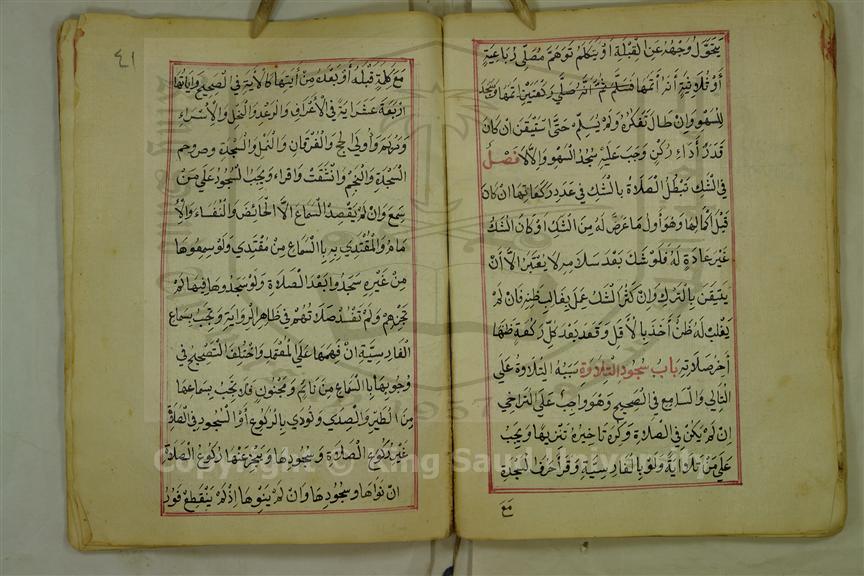 يتحوّل وجهه عن القبلة او يتكلم توهّم مصلي رباعية
او ثلاثية انه اتمها فسلّم ثم انه صلّي ركعتين اتمها وسجد
للسهو وان طال تفكّره ولم يسلّم حتّي استيقن ان كان
قدر اداء ركن وجب عليه سجود السهو والا لا فصل
في الشك تبطل الصلاة بالشك في عدد ركعاتها ان كان
قبل اكمالها وهو اول ما عرض له من الشك او كان الشك
غير عادة له فلو شك بعد سلامه لا يعتبر الا ان
يتيقن بالترك وان كثر الشك عمل بغالب ظنه فان لم
يغلب له ظن أخذ بالاقل وقعد بعد كل ركعة ظنها
اخر صلاته باب سجود التلاوة سببه التلاوة علي
التالي والسامع في الصحيح وهو واجب علي التراخي
ان لم يكن في الصلاة وكره تاخيره تنزيها ويجب
علي من تلا اية ولو بالفارسية وقرأ حرف السجدة
مع
٤١
مع كلمة قبله أو بعده من أيتها كالاية في الصحيح واياتها
اربعة عشر اية في الأعراف والرعد والنحل والاسراء
ومريم وأولي الحج والفرقان والنمل والسجدة وص وحم
السجدة والنجم وانشقت واقراء ويجب السجود علي من
سمع وان لم يقصد السماع الا الحائض والنفساء والا
مام والمقتدي به بالسماع من مقتدي ولو سمعوها
من غيره سجدوا بعد الصلاة ولو سجدوها فيها لم
تجزهم ولم تفسد صلاتهم في ظاهر الرواية ويجب بسماع
الفارسيّة ان فهمها علي المعتمد واختلف التصحيح في
وجوبها بالسماع من نائم ومجنون فلا يجب بسماعها
من الطير والصدي وتؤدي بالركوع أو السجود في الصلاة
غير ركوع الصلاة وسجودها ويجزء عنها ركوع الصلاة
ان نواها وسجودها وان لم ينوها اذ لم ينقطع فور
Copyright © King Saud University
1957